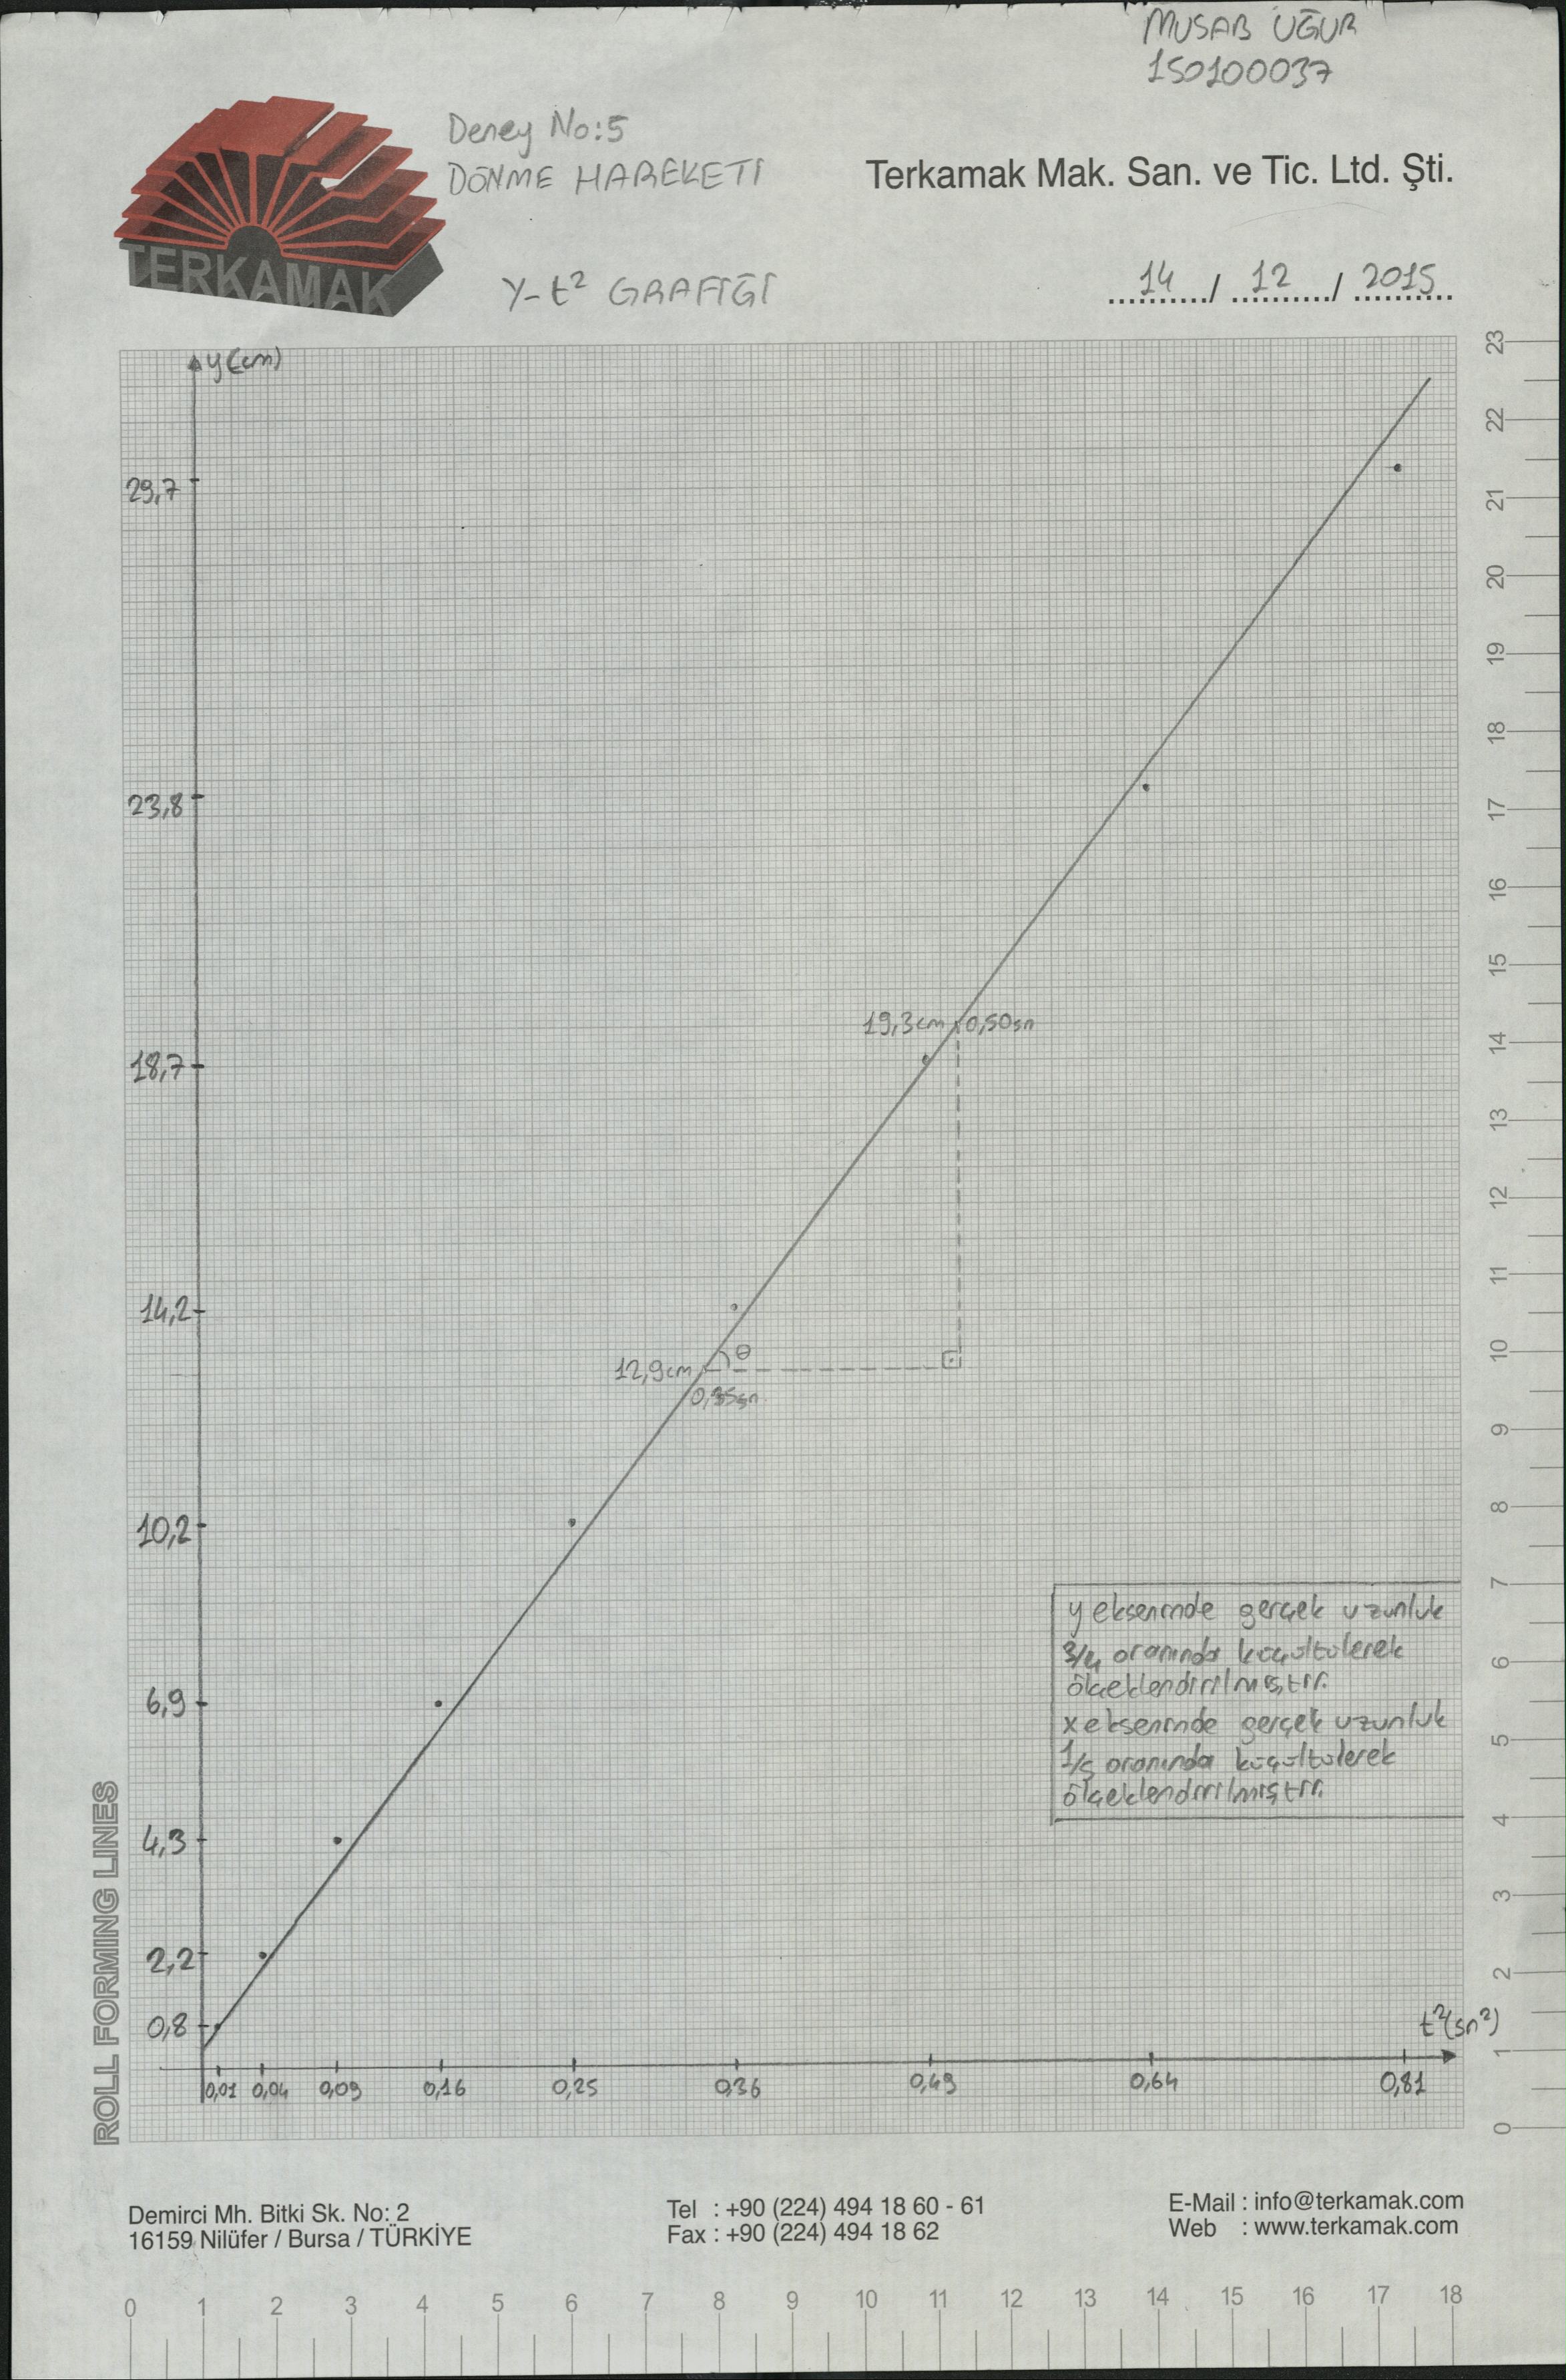 MUSAB UĞUR
150100037
Deney No:5
DÖNME HAREKETİ
Terkamak Mak. San. ve Tic. Ltd. Şti.
TERKAMAK
y-t² GRAFİĞİ
14 / 12 / 2015
y(cm)
29,7
23,8
18,7
14,2
10,2
6,9
4,3
2,2
0,8
19,3cm 0,50sn
12,9cm θ
y ekseninde gerçek uzunluk
3/4 oranında küçültülerek
ölçeklendirilmiştir.
x ekseninde gerçek uzunluk
1/5 oranında küçültülerek
ölçeklendirilmiştir.
t²(sn²)
0,01 0,04 0,09 0,16 0,25 0,36 0,49 0,64 0,81
23
22
21
20
19
18
17
16
15
14
13
12
11
10
9
8
7
6
5
4
3
2
1
0
ROLL FORMING LINES
Demirci Mh. Bitki Sk. No: 2
16159 Nilüfer / Bursa / TÜRKİYE
Tel : +90 (224) 494 18 60 - 61
Fax : +90 (224) 494 18 62
E-Mail : info@terkamak.com
Web : www.terkamak.com
0 1 2 3 4 5 6 7 8 9 10 11 12 13 14 15 16 17 18